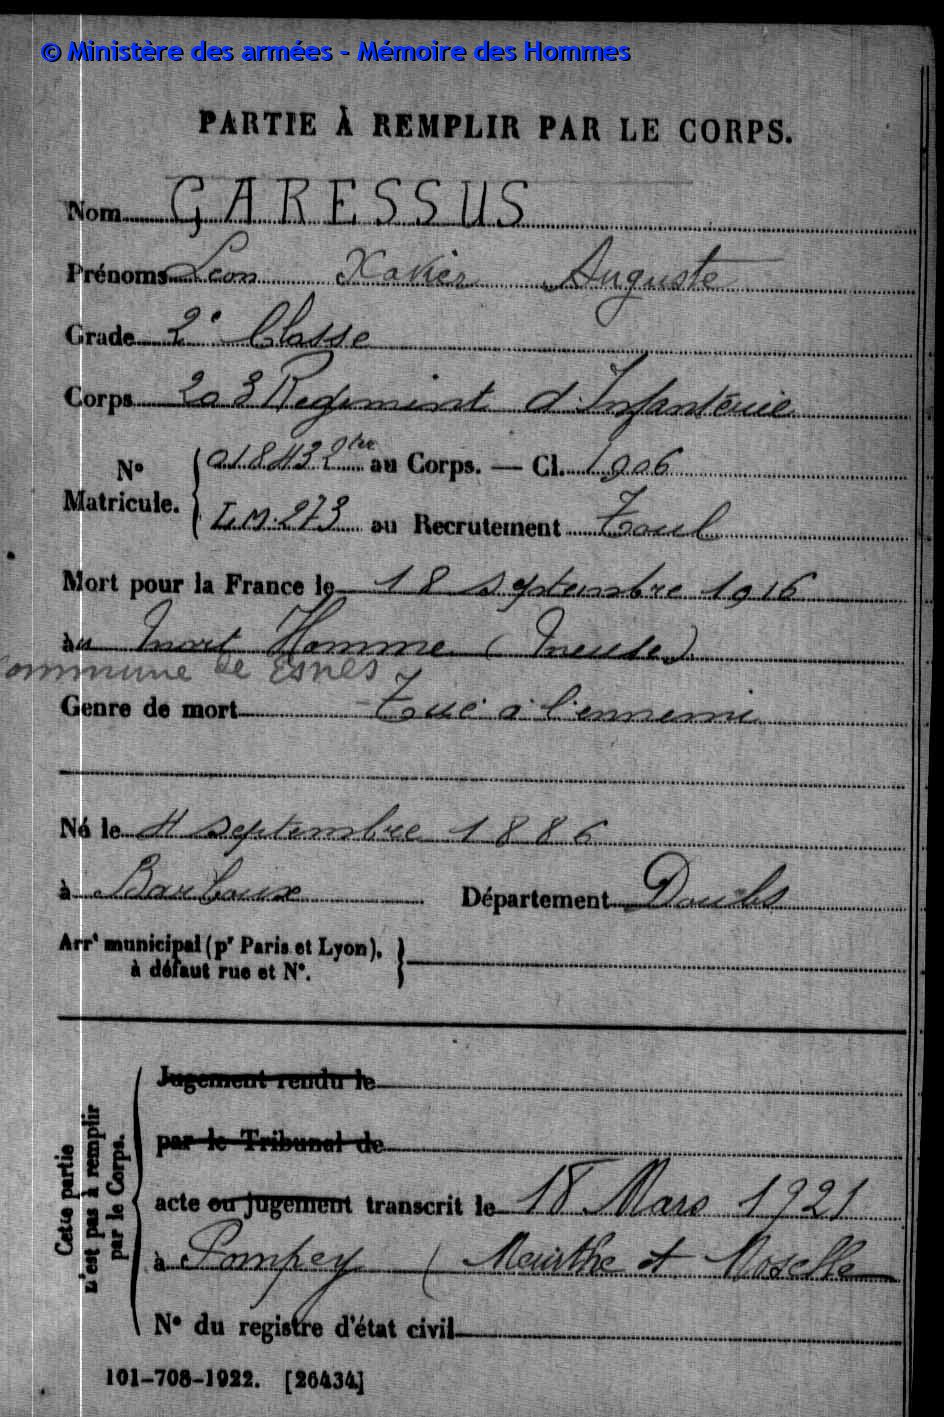 © Ministère des armées - Mémoire des Hommes
PARTIE À REMPLIR PAR LE CORPS.
Nom GARESSUS
Prénoms Léon Xavier Auguste
Grade 2e Classe
Corps 203 Regiment d'Infanterie
N° Matricule. 018432 ter au Corps. — Cl. 1906
L.M. 273 au Recrutement Toul
Mort pour la France le 18 septembre 1916
au Mort Homme (Meuse)
Commune de Esnes
Genre de mort Tué à l'ennemi
Né le 4 septembre 1886
à Barboux Département Doubs
Arrt municipal (pr Paris et Lyon),
à défaut rue et N°.
Cette partie
n'est pas à remplir
par le Corps.
Jugement rendu le
par le Tribunal de
acte ou jugement transcrit le 18 Mars 1921
à Pompey (Meurthe et Moselle
N° du registre d'état civil
101-708-1922. [26434]